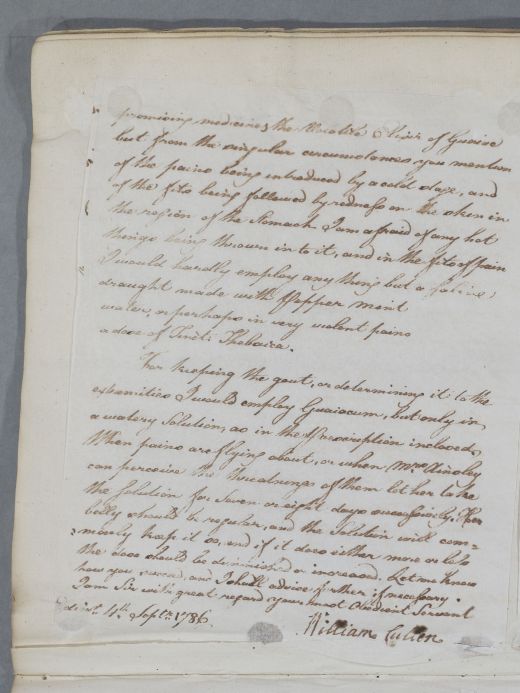 promising medicines the Volatile Elixir of Guaiac
but from the singular circumstances you mention
of the pains being introduced by a cold stage, and
of the fits being followed by redness on the skin in
the region of the Stomach I am afraid of any hot
things being thrown in to it, and in the fits of pain
I would hardly employ any thing but a Saline
draught made with Pepper mint
water, or perhaps in very violent pains
a dose of Tinct: Thebaica.
For keeping the gout, or determining it to the
extremities I would employ Guaiacum, but only in
a watery Solution, as in the Prescription inclosed.
When pains are flying about, or when Mrs
can perceive the threatnings of them let her take
the Solution for Seven or eight days successively. Her
belly should be regular, and the Solution will com=
monly keep it so, and if it does either more or less
the dose should be diminished or increased. Let me know
how you succeed, and I shall advise further if necessary.
I am Sir with great regard your most Obedient Servant
Edinr. 4th. Septr. 1786 William Cullen